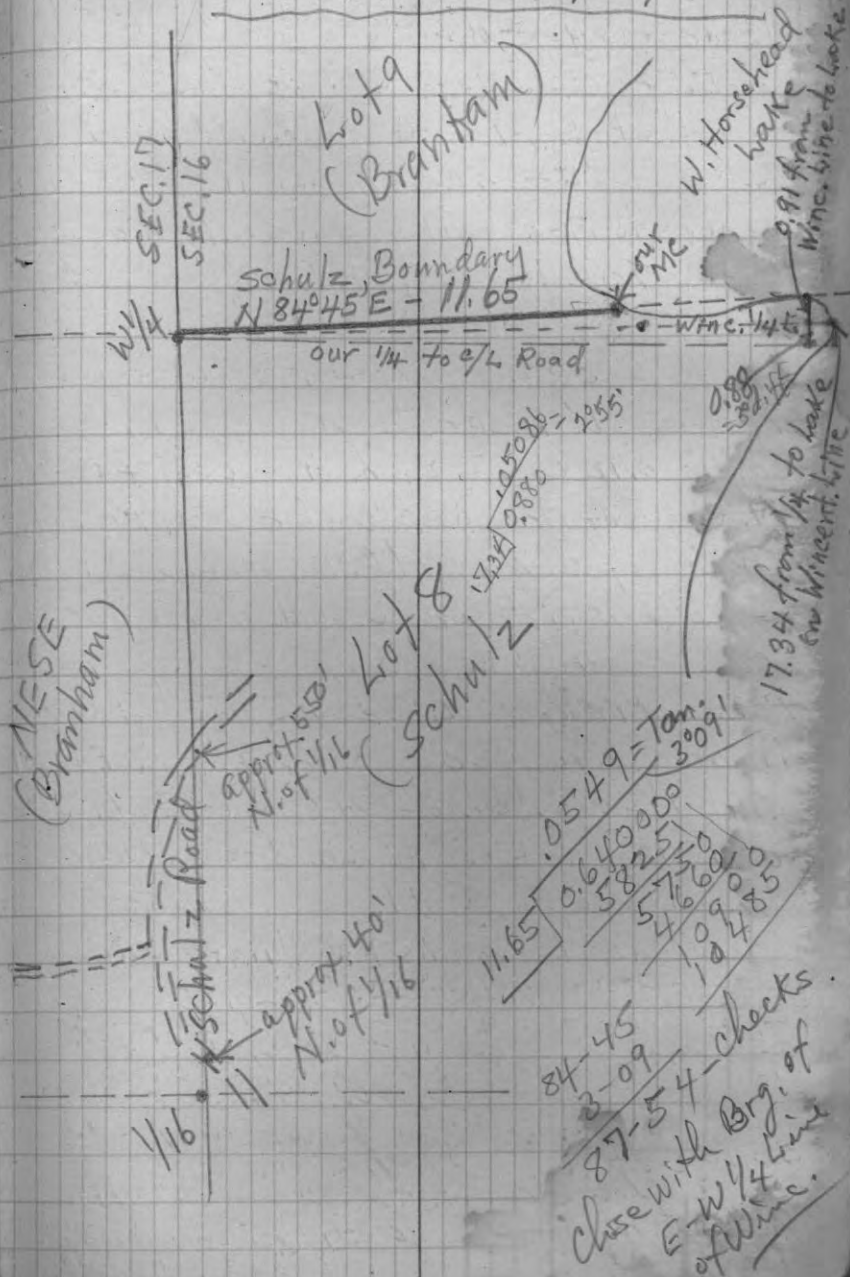 Lot 9
(Branham)
W. Horsehead
Lake
0.91 from
Winc. Line to Lake
SEC. 17
SEC. 16
Schulz, Boundary
N 84°45' E - 11.65
our
MC
W 1/4
Winc. 1/4
our 1/4 to c/L Road
0.88
17.34 from 1/4 to Lake
on Wincent. Line
.05086 = 2°55'
17.34 0.880
Lot 8
(Schulz
NESE
(Branham)
approx. 550'
N. of 1/16
Schulz Road
approx. 40'
N. of 1/16
1/16
.0549 = Tan.
3°09'
11.65 0.640000
5825
5750
4660
10900
10485
84-45
3-09
87-54 - checks
close with Brg. of
E-W 1/4 Line
of Winc.